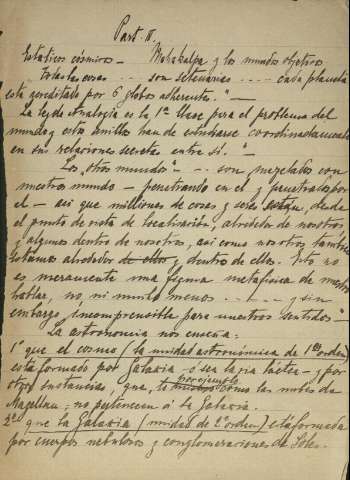 Part. II.
Estáticos cósmicos — Mahakalpa y los mundos objetivos
"Todas las cosas .... son setenarias .... cada planeta
está acreditado por 6 globos adherentes." —
La ley de analogía es la 1ª llave para el problema del
mundo y estos anillos han de estudiarse coordinadamente
en sus relaciones secretas entre sí." —
Los "otros mundos" — .. son mezclados con
nuestro mundo — penetrando en él y penetrados por
él — así que millones de cosas y seres están, desde
el punto de vista de localización, alrededor de nosotros
y algunos dentro de nosotros, así como nosotros también
estamos alrededor de ellos y dentro de ellos. Esto no
es meramente una figura metafísica de nuestro
hablar, no, ni mucho menos ..... y sin
embargo incomprensible para nuestros sentidos" —
La astronomía nos enseña:
1º que el cosmos (la unidad astronómica de 1er orden)
está formado por Galaxia o sea la vía láctea — y por
otras sustancias, que, por ejemplo como las nubes de
Magellan, no pertenecen á la Galaxia.
2º que la Galaxia (unidad de 2º orden) está formada
por cuerpos nebulosos y conglomeraciones de Soles.